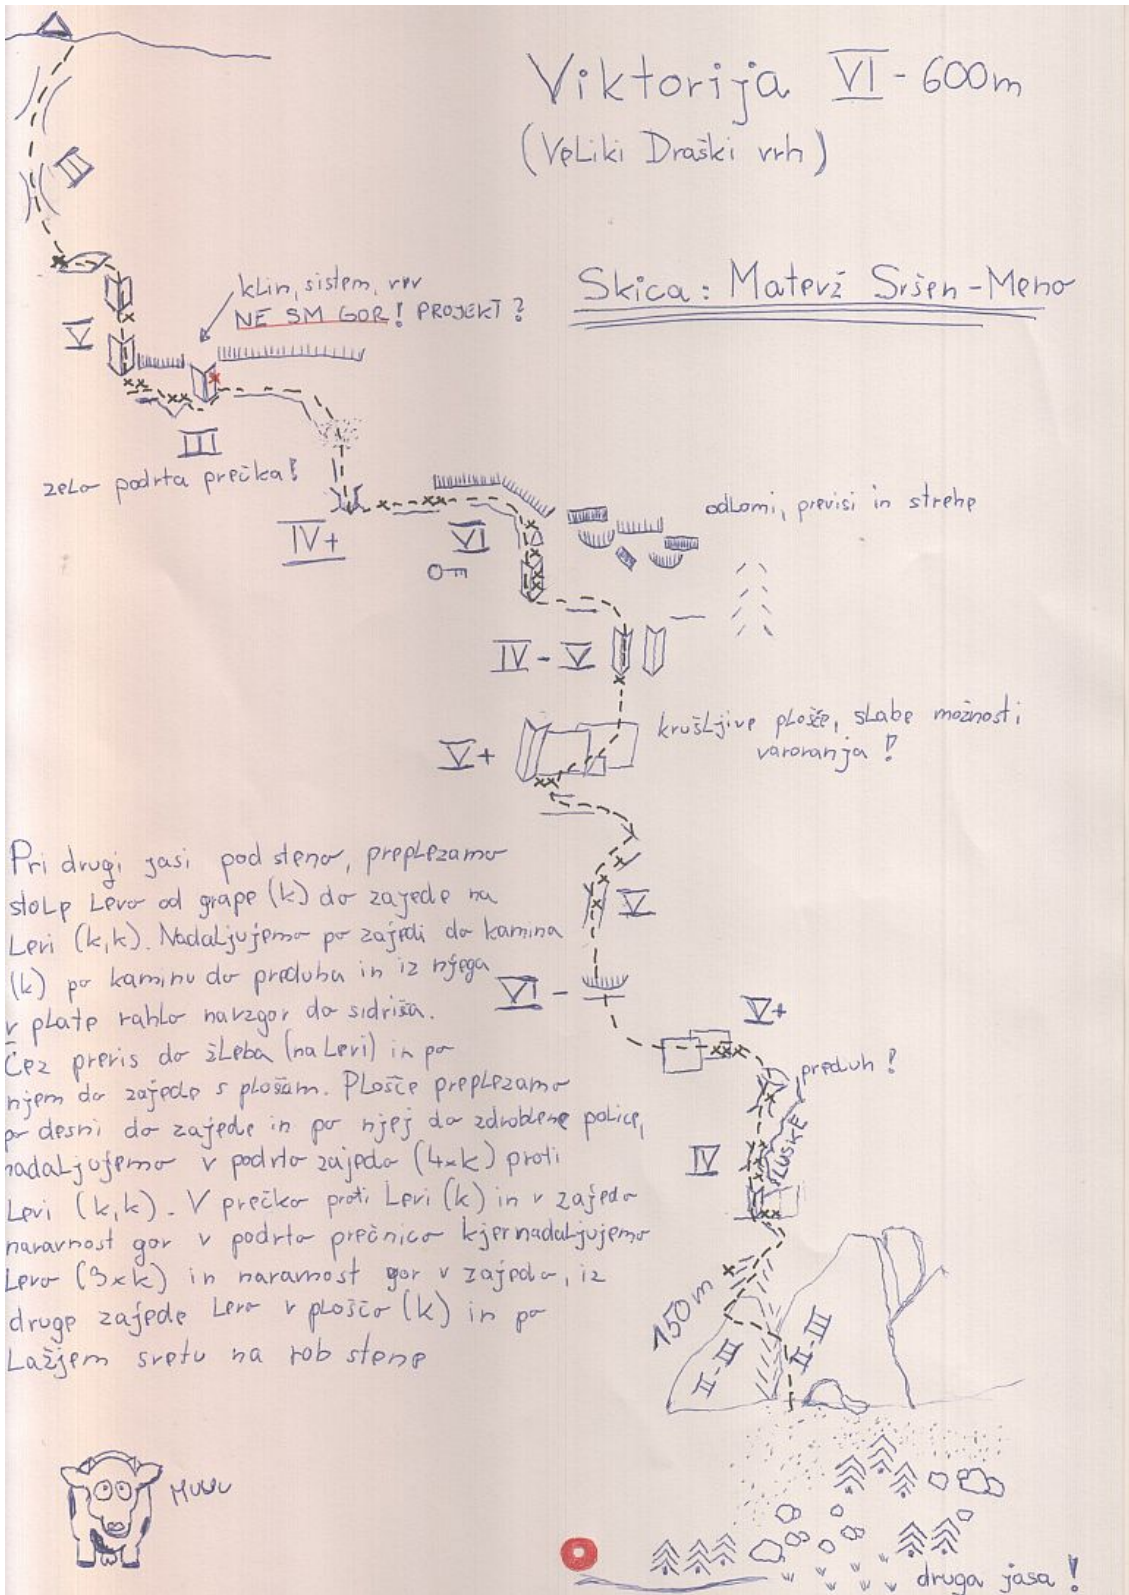 Viktorija VI - 600m
(Veliki Draški vrh)
Skica: Matevž Sršen-Meno
III
klin, sistem, vrv
NE SM GOR! PROJEKT?
V
III
zelo podrta prečka!
IV+
VI
odlomi, previsi in strehe
IV - V
krušljive plošče, slabe možnosti
varovanja!
V+
V
VI -
V+
preduh!
IV
LUSKE
150m
II-III
II-III
Pri drugi jasi pod steno, preplezamo
stolp levo od grape (k) do zajede na
levi (k,k). Nadaljujemo po zajedi do kamina
(k) po kaminu do preduha in iz njega
v plate rahlo navzgor do sidriša.
Čez previs do žleba (na levi) in po
njem do zajede s plošam. Plošče preplezamo
po desni do zajede in po njej do zdrobljene police,
nadaljujemo v podrto zajedo (4xk) proti
levi (k,k). V prečko proti levi (k) in v zajedo
naravnost gor v podrto prečnico kjer nadaljujemo
levo (3xk) in naravnost gor v zajedo, iz
druge zajede levo v ploščo (k) in po
lažjem svetu na rob stene
MUUU
druga jasa!